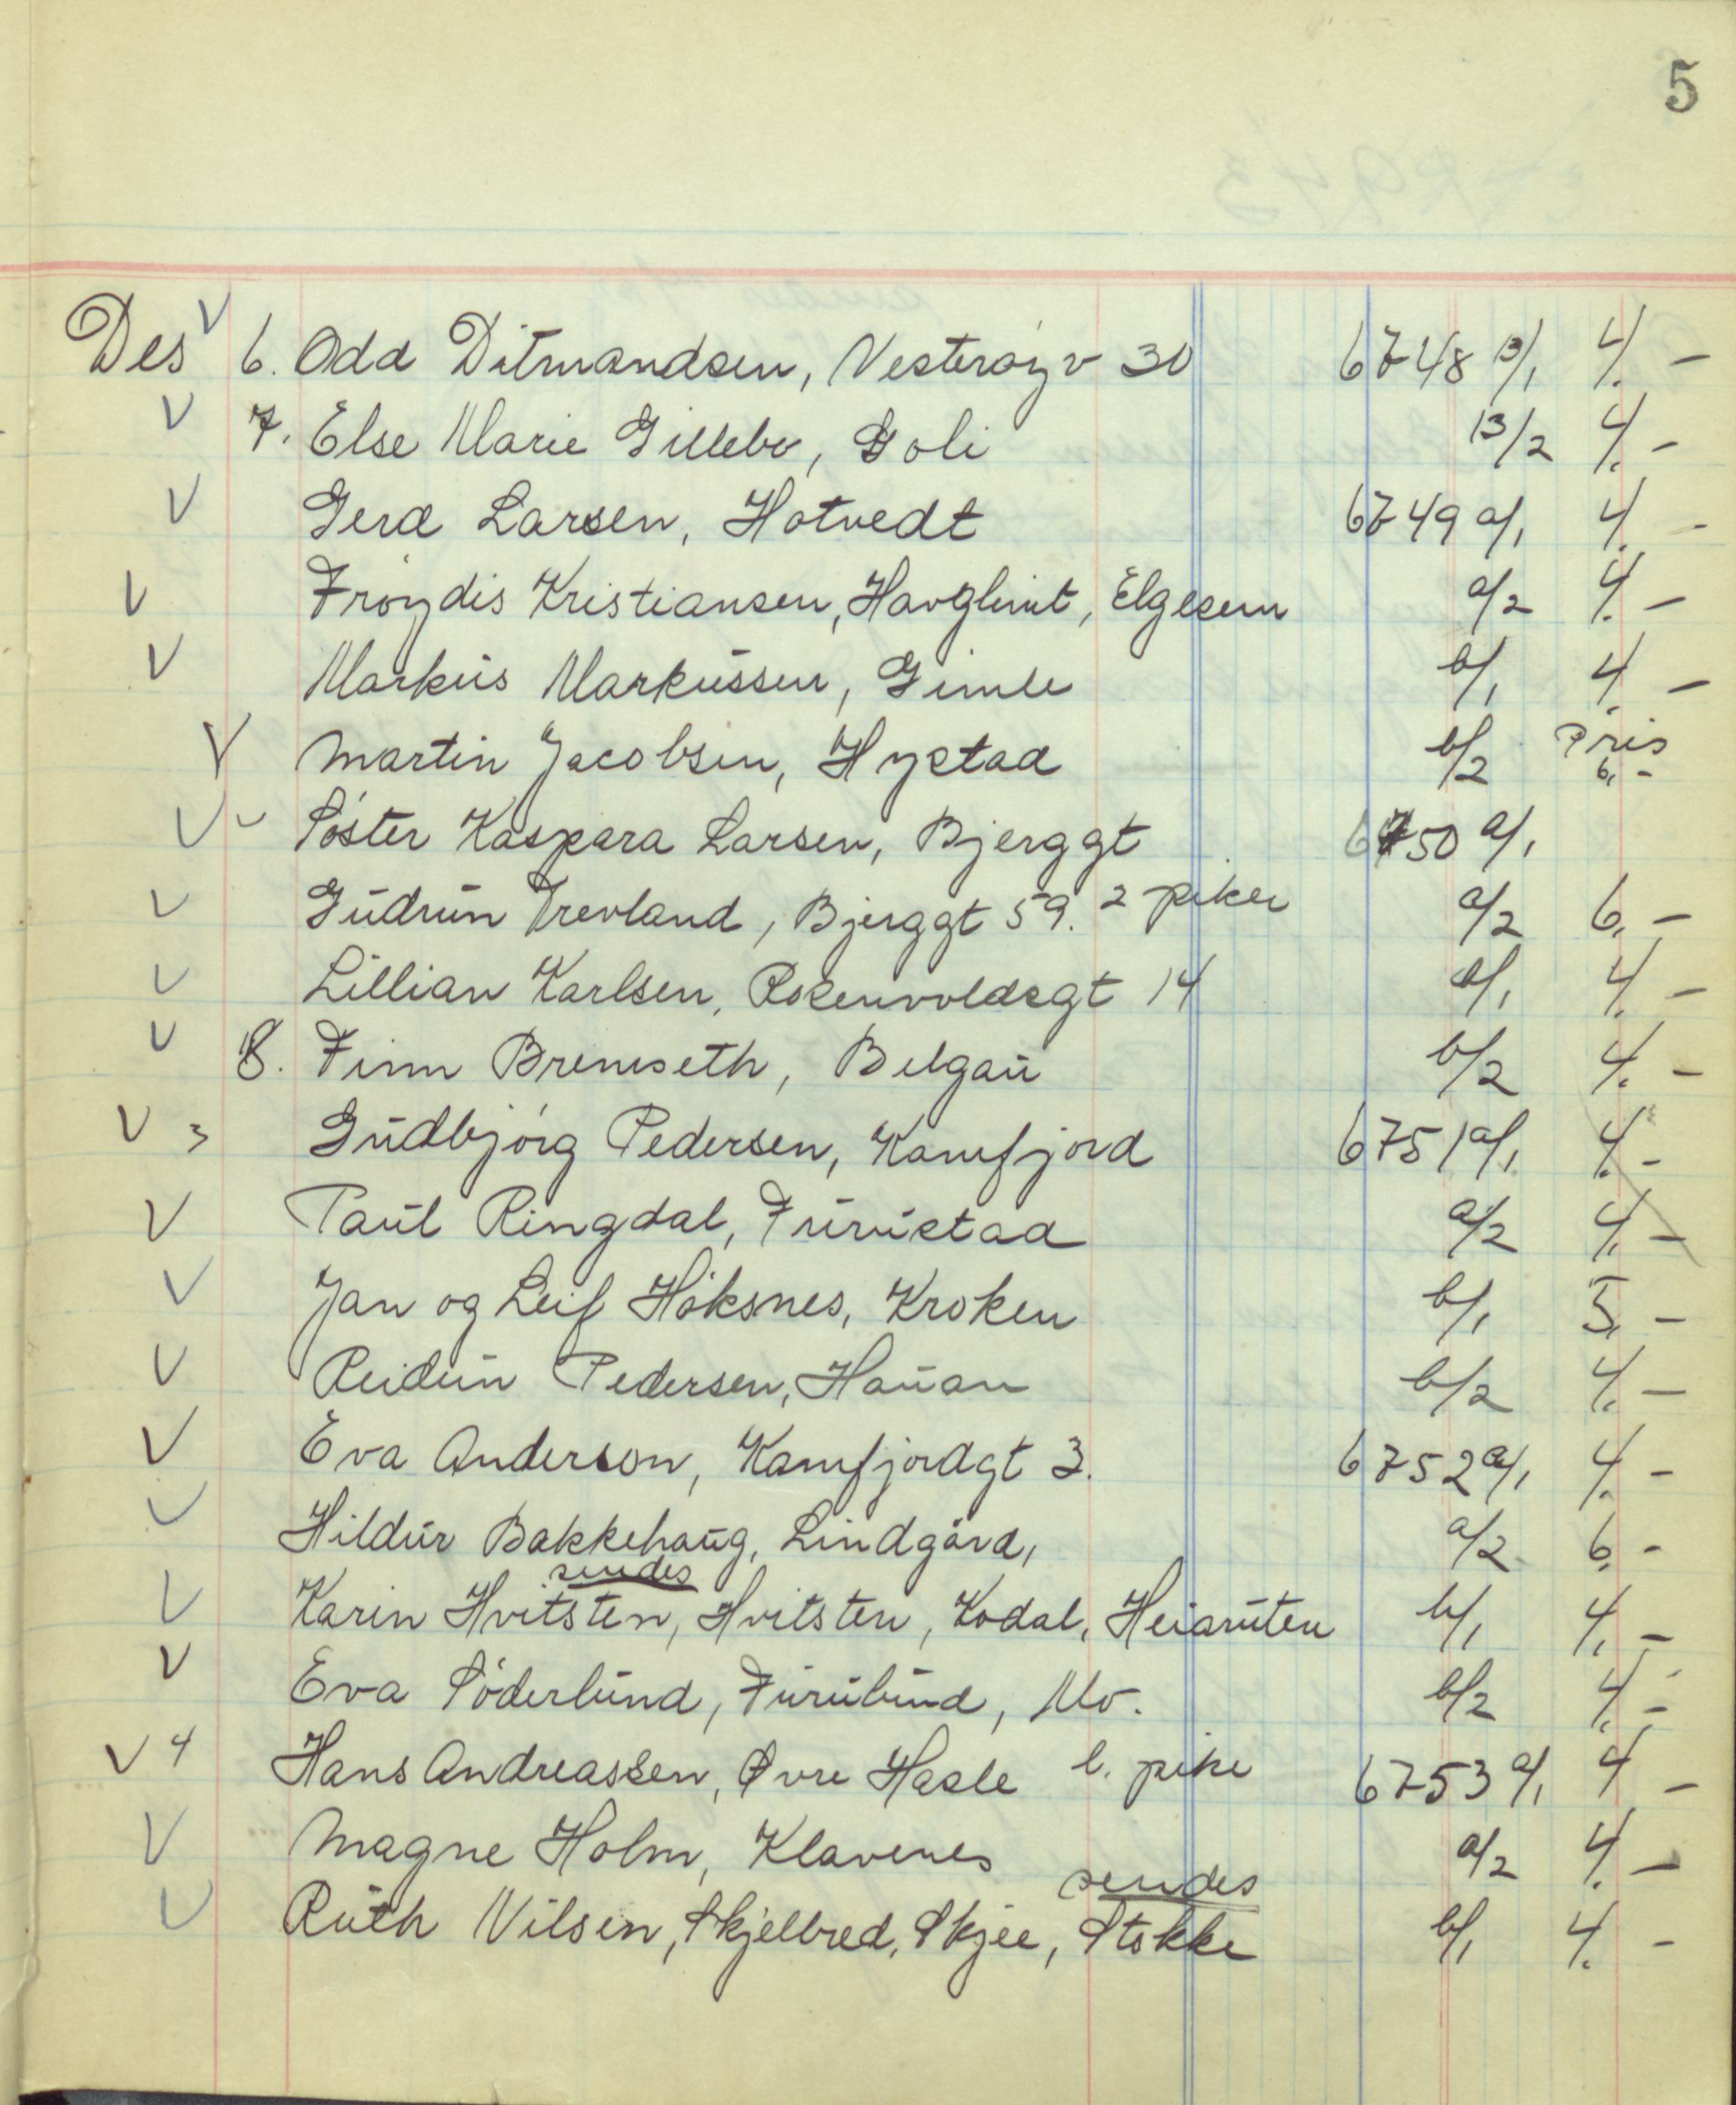 5
Des V 6. Odd Ditmandsen, Vesterøyv 30 6748 B/1 4.-
V 7. Else Marie Gillebo, Goli B/2 4.-
V Gerd Larsen, Hotvedt 6749 a/1 4.-
V Frøydis Kristiansen, Havglimt, Elgesem a/2 4.-
V Markus Markussen, Gimle b/1 4.-
V Martin Jacobsen, Hystad b/2 Pris 6.-
V Søster Kaspara Larsen, Bjerggt 6750 a/1
V Gudrun Trevland, Bjerggt 59. 2 piker a/2 6.-
V Lillian Karlsen, Rosenvoldsgt 14 b/1 4.-
V 8. Finn Bremseth, Belgau b/2 4.-
V 3 Gudbjørg Pedersen, Kamfjord 6751 a/1 4.-
V Paul Ringdal, Furustad a/2 4.-
V Jan og Leif Høksnes, Kroken b/1 5.-
V Reidun Pedersen, Hauan b/2 4.-
V Eva Anderson, Kamfjordgt 3. 6752 a/1 4.-
V Hildur Bakkehaug, Lindgård, a/2 6.-
sendes
V Karin Hvitsten, Hvitsten, Kodal, Heiaruten b/1 4.-
V Eva Söderlund, Furulund, Mo. b/2 4.-
V 4 Hans Andreassen, Øvre Hasle l. pike 6753 a/1 4-
V Magne Holm, Klavenes a/2 4.-
sendes
V Ruth Nilsen, Skjelbred, Skjee, Stokke b/1 4.-